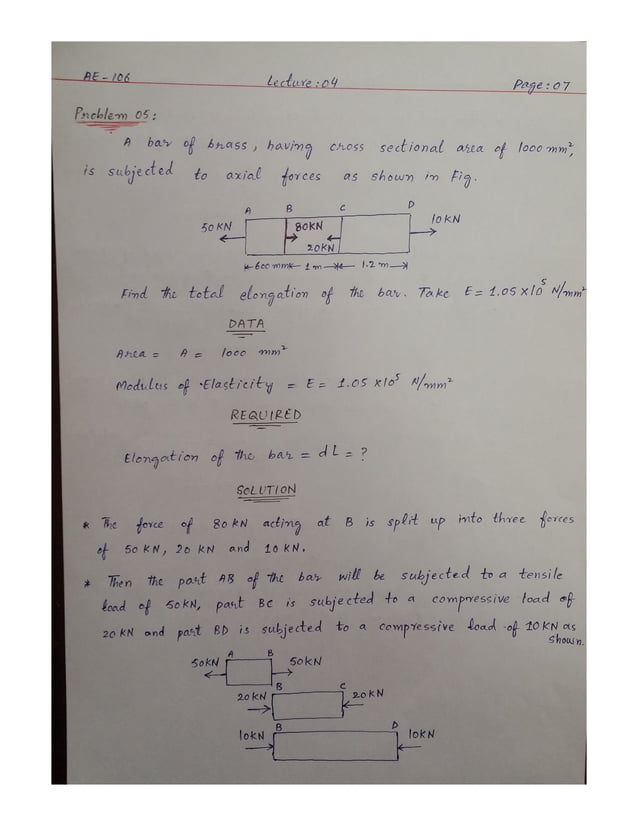 AE-106 Lecture:04 Page:07
Problem 05:
A bar of brass, having cross sectional area of 1000 mm²,
is subjected to axial forces as shown in Fig.
A B C D
50 KN 80KN 10 KN
20KN
600 mm 1 m 1.2 m
Find the total elongation of the bar. Take E = 1.05 x 10⁵ N/mm²
DATA
Area = A = 1000 mm²
Modulus of Elasticity = E = 1.05 x10⁵ N/mm²
REQUIRED
Elongation of the bar = dL = ?
SOLUTION
* The force of 80 KN acting at B is split up into three forces
of 50 KN, 20 KN and 10 KN.
* Then the part AB of the bar will be subjected to a tensile
load of 50KN, part BC is subjected to a compressive load of
20 KN and part BD is subjected to a compressive load of 10 KN as
shown.
A B
50KN 50KN
B C
20 KN 20 KN
B D
10KN 10KN